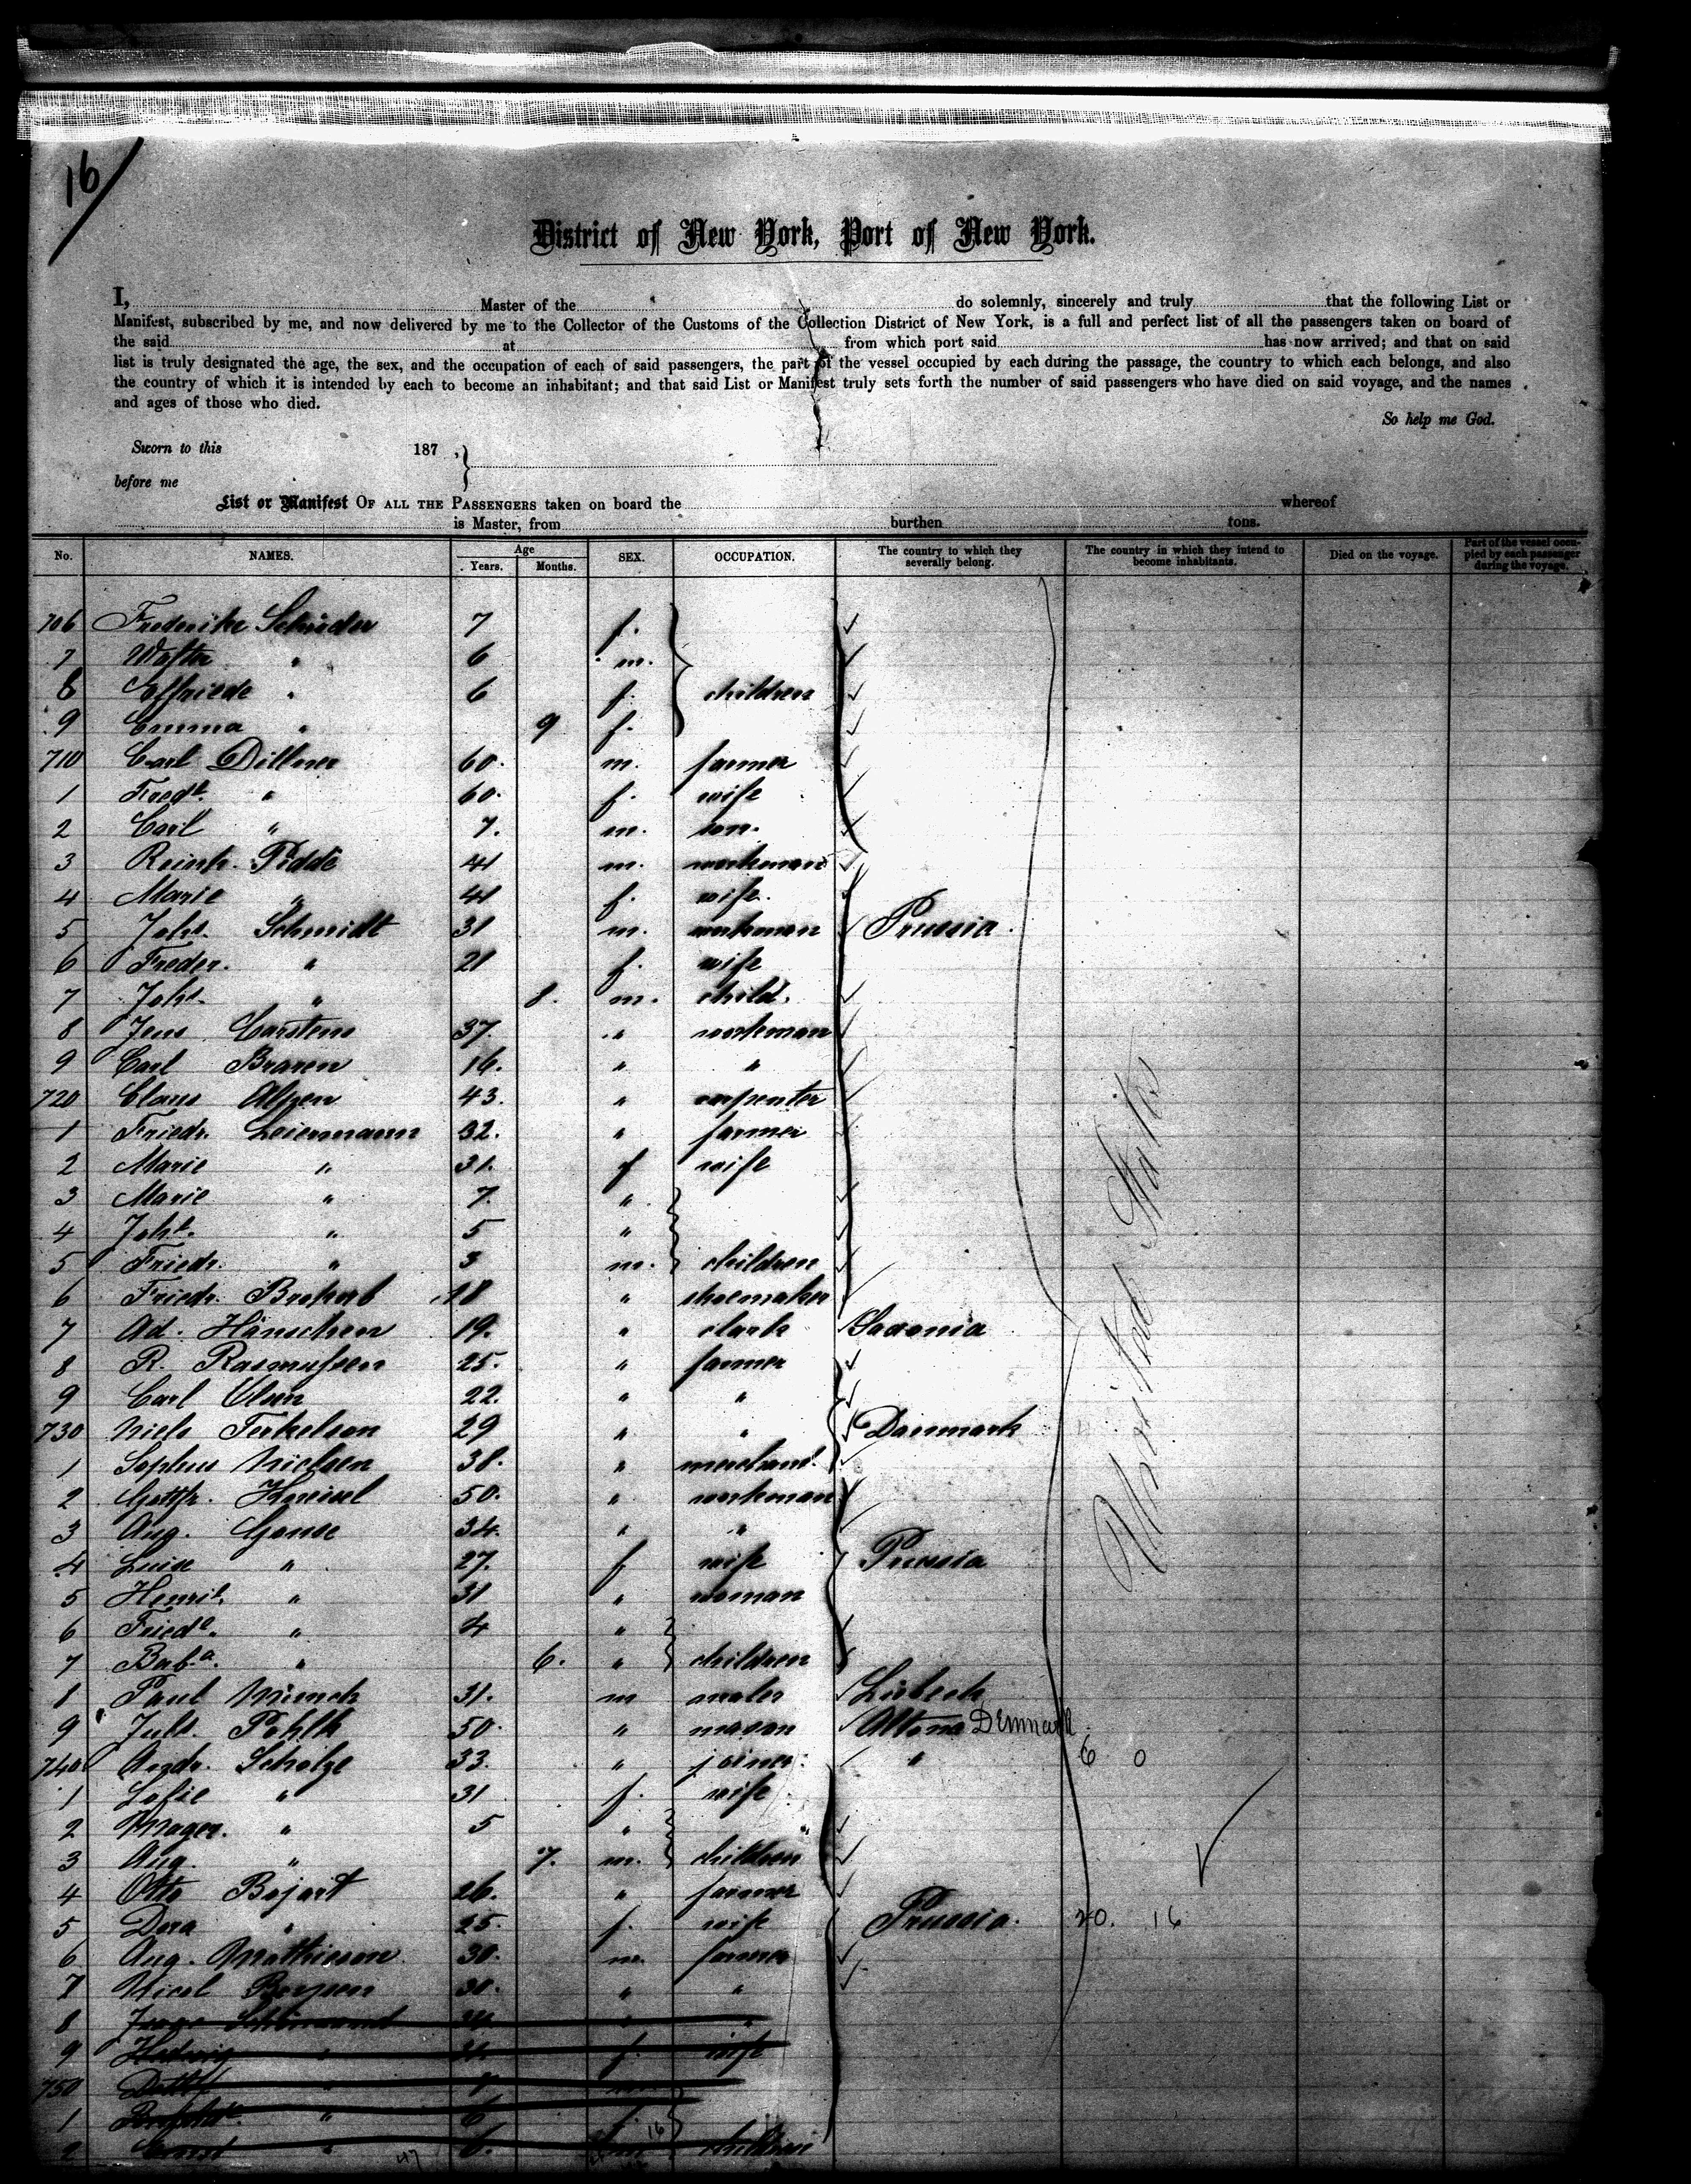 16
District of New York, Port of New York.
I, Master of the do solemnly, sincerely and truly that the following List or
Manifest, subscribed by me, and now delivered by me to the Collector of the Customs of the Collection District of New York, is a full and perfect list of all the passengers taken on board of
the said at from which port said has now arrived; and that on said
list is truly designated the age, the sex, and the occupation of each of said passengers, the part of the vessel occupied by each during the passage, the country to which each belongs, and also
the country of which it is intended by each to become an inhabitant; and that said List or Manifest truly sets forth the number of said passengers who have died on said voyage, and the names
and ages of those who died.
So help me God.
Sworn to this 187 ,
before me
List or Manifest OF ALL THE PASSENGERS taken on board the whereof
is Master, from burthen tons.
No. NAMES. Age Years. Months. SEX. OCCUPATION. The country to which they severally belong. The country in which they intend to become inhabitants. Died on the voyage. Part of the vessel occupied by each passenger during the voyage.
706 Frederike Schröder 7 f.
7 " 6 m.
8 " 6 f. children
9 Emma " 9 f.
710 Carl Dillner 60. m. farmer
1 Fredk. " 60. f. wife
2 Carl " 7. m. son.
3 Reinh. Pidde 41 m. workman
4 Marie " 41 f. wife.
5 Joht. Schmidt 31 m. workman Prussia.
6 Freder. " 21 f. wife
7 Joht. " 8. m. child.
8 Jens Carstens 37. " workman
9 Carl Braren 16. " "
720 Claus Alpen 43. " carpenter
1 Friedr. Leiermann 32. " farmer
2 Marie " 31. f wife
3 Marie " 7. "
4 Joht. " 5 "
5 Friedr. " 3 m. children
6 Friedr. 18 " shoemaker
7 Ad. Hänschen 19. " clark Saxonia
8 R. Rasmussen 25. " farmer
9 Carl Olsen 22. " "
730 Niels Terkelson 29 " " Danmark
1 Sophus Nielsen 38. " merchant.
2 Gottfr. 50. " workman
3 Aug. Ganse 34. " "
4 Luise " 27. f wife Prussia
5 Henrit. " 31 " woman
6 Friede. " 4 "
7 Baba. " 6. " children
8 Paul 31. m
9 Juls. Pohlk 50. " mason Altona Denmark
740 Andr. Scholze 33. " joiner. " 6 0
1 Sofie " 31 f. wife
2 " 5 "
3 Aug. " 7. m. children
4 Otto Bojart 26. " farmer
5 Dora " 25. f. wife Prussia. 20. 16
6 Aug. Mathieson 30. m. farmer
7 Nicol 30. " "
8 " "
9 Hedwig " f. wife
750 "
1 " 6 f.
2 Ernst " 6. children
47 16
United States